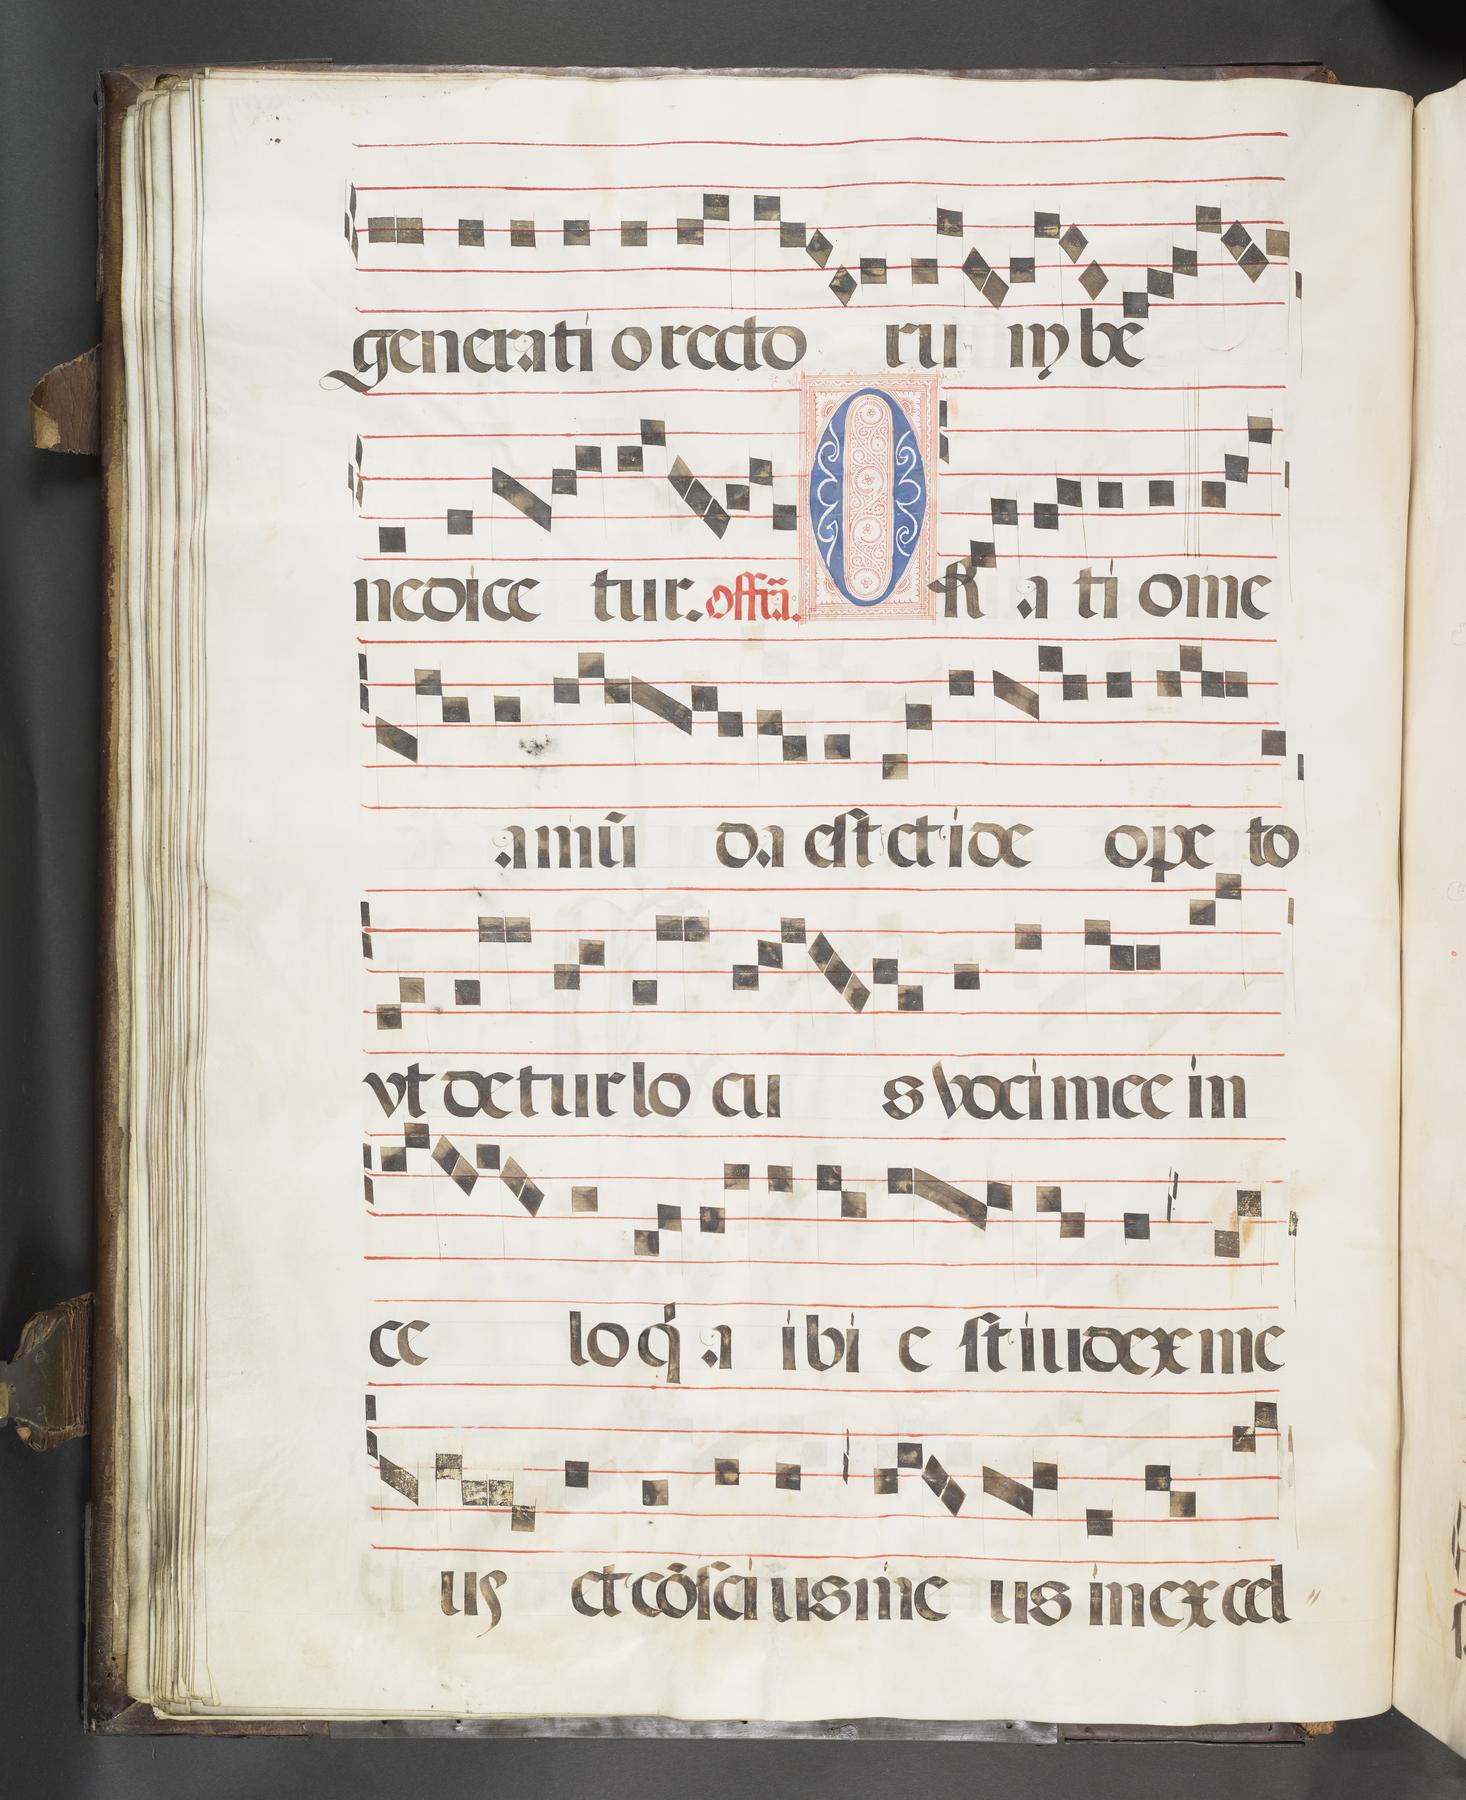 generati o recto ru m be
nedice tur. offrā. OR a ti o me
a mū da est et i de o pe to
vt de tur lo cu s voci mee in
ce lo q̇ a i bi e st iudex me
us et cōsci us me us in excel